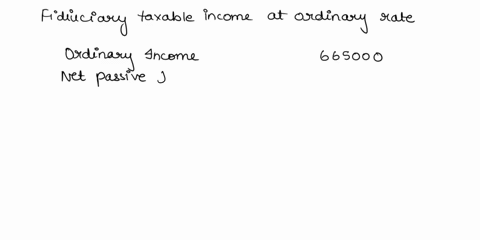 Fiduciary taxable income at ordinary rate
Ordinary Income 665000
Net passive